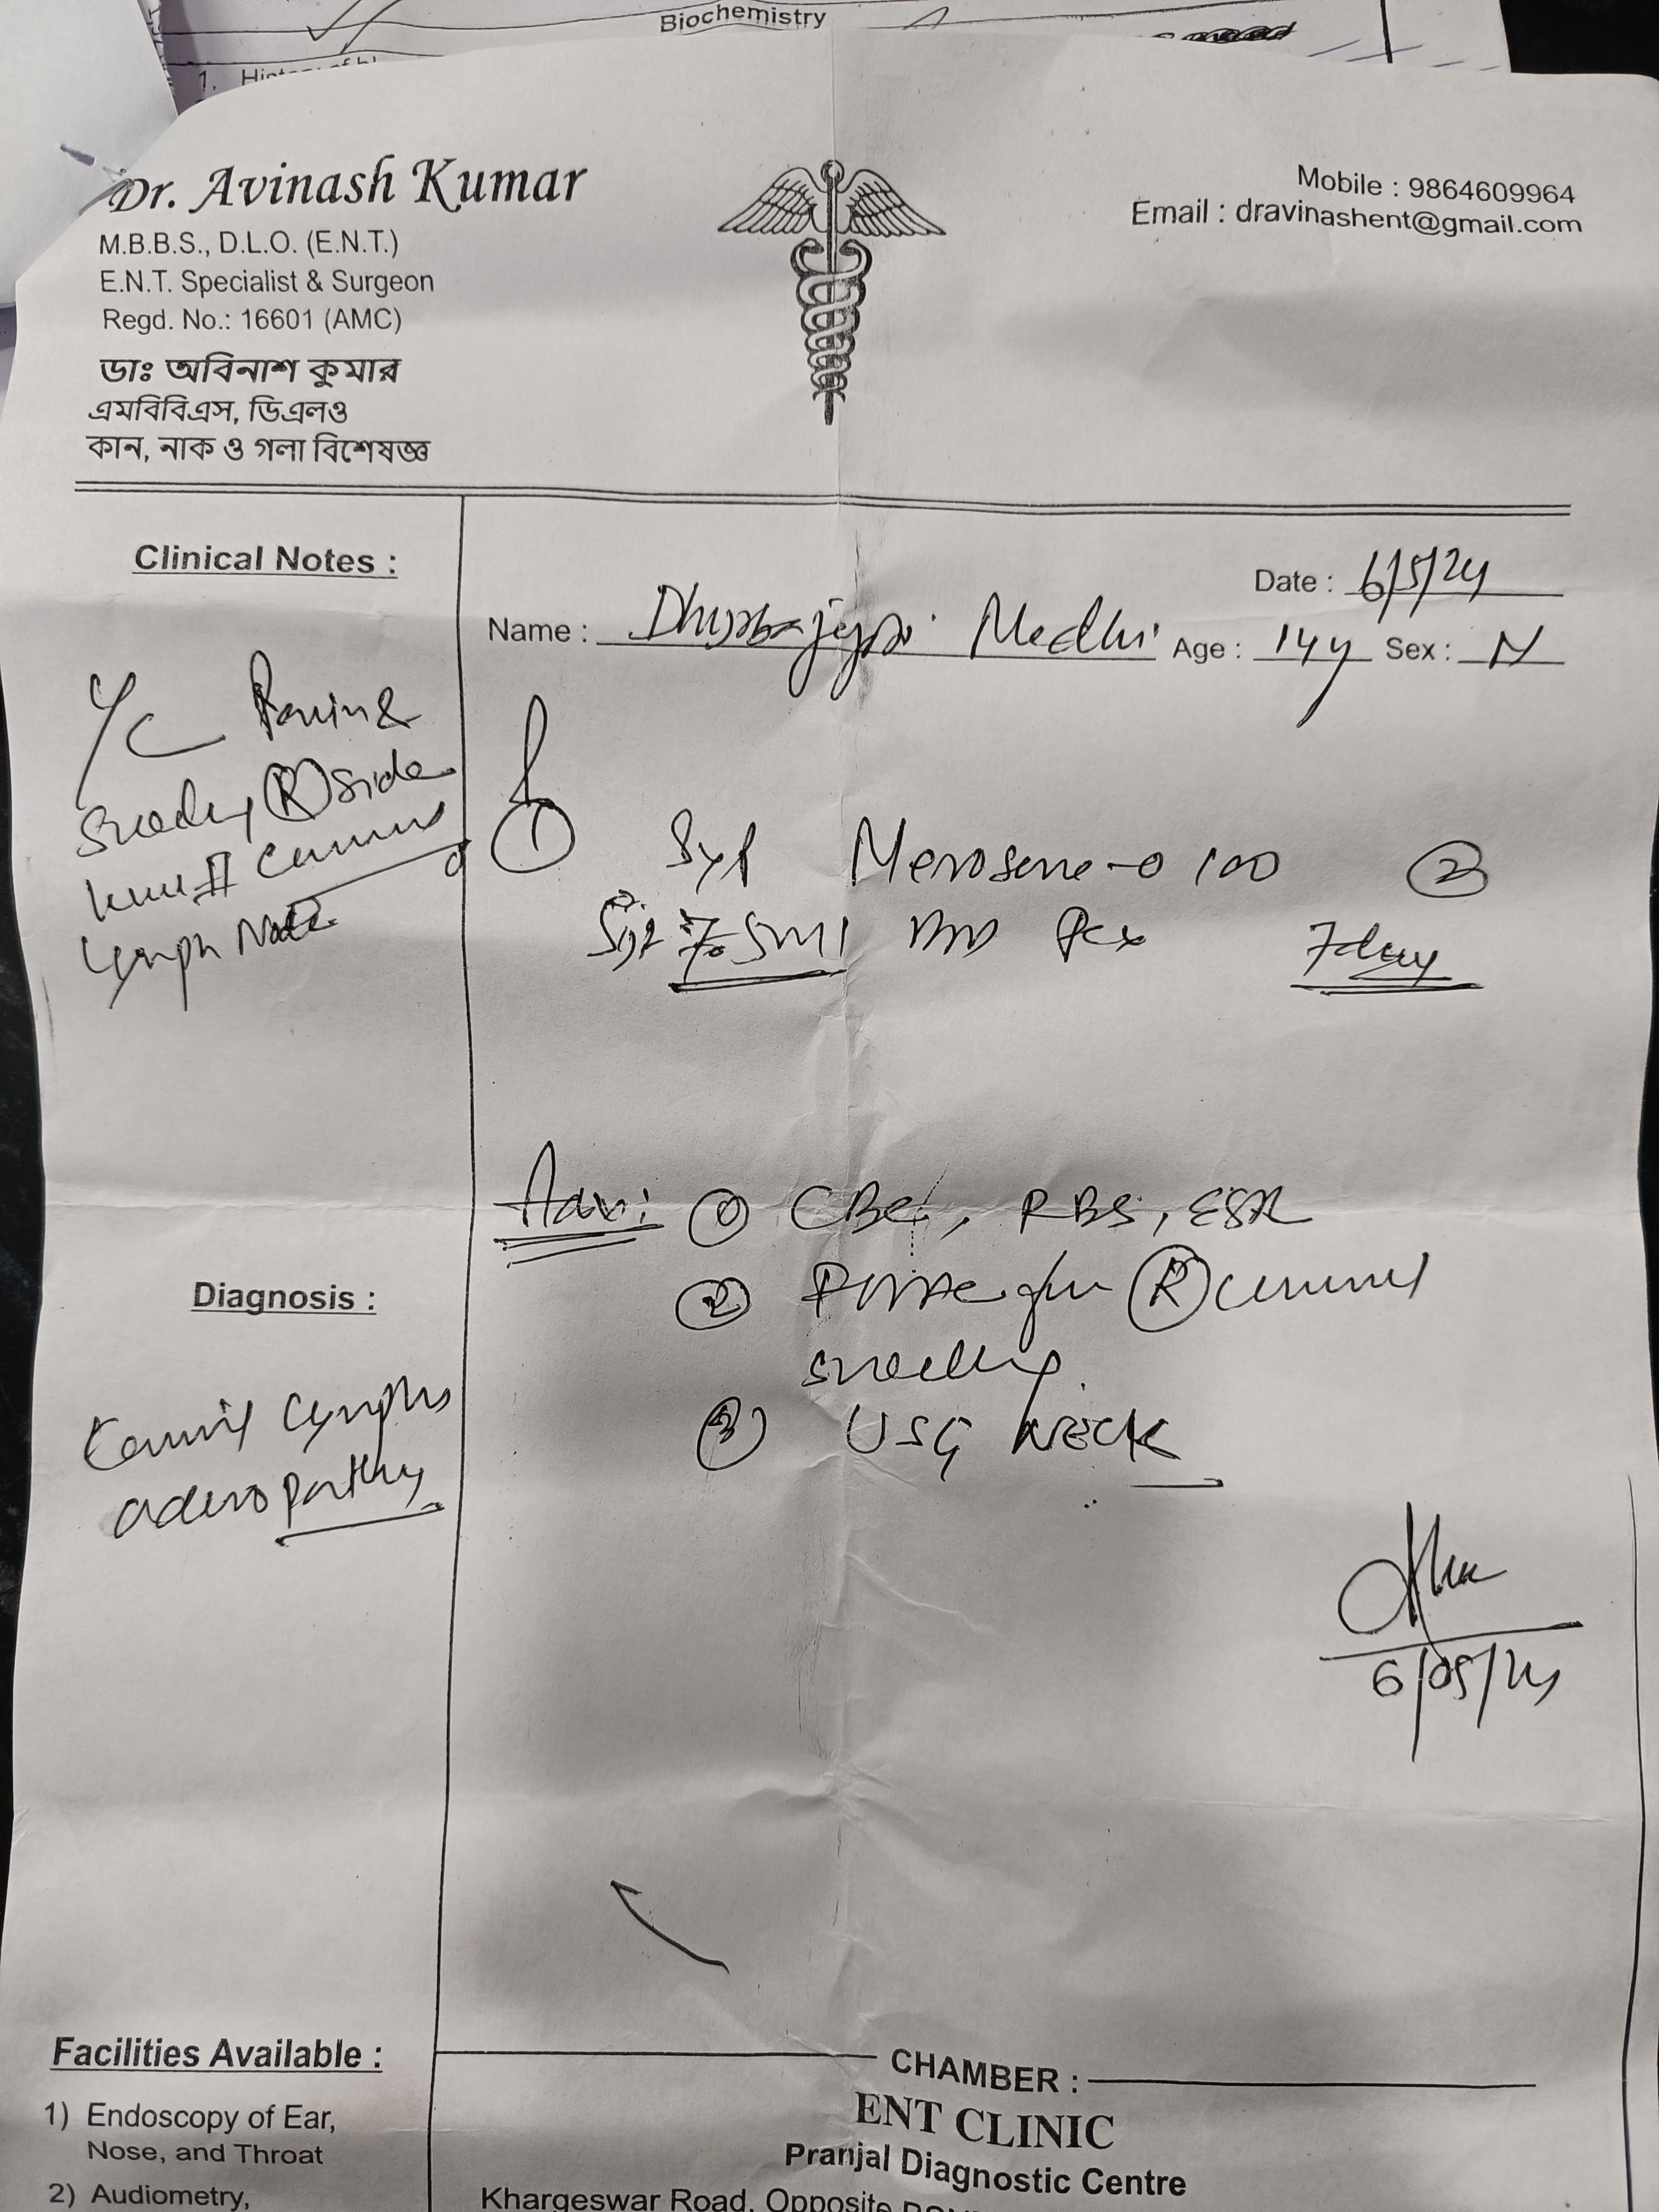 Biochemistry
1. Hist
Dr. Avinash Kumar
M.B.B.S., D.L.O. (E.N.T.)
E.N.T. Specialist & Surgeon
Regd. No.: 16601 (AMC)
ডাঃ অবিনাশ কুমাৰ
এমবিবিএস, ডিএলও
কান, নাক ও গলা বিশেষজ্ঞ
Mobile : 9864609964
Email : dravinashent@gmail.com
Clinical Notes :
Pain &
Swelling (R) Side
Lymph Node
Date : 6/5/24
Name : Medhi Age : 14y Sex : M
① Syp 100 ②
5ml 7days
Adv: ① CBC, RBS, ESR
② FNAC from (R) cervical
swelling
③ USG NECK
Diagnosis :
Cervical Lympho
adenopathy
6/05/24
Facilities Available :
1) Endoscopy of Ear,
Nose, and Throat
2) Audiometry,
CHAMBER :
ENT CLINIC
Pranjal Diagnostic Centre
Khargeswar Road, Opposite